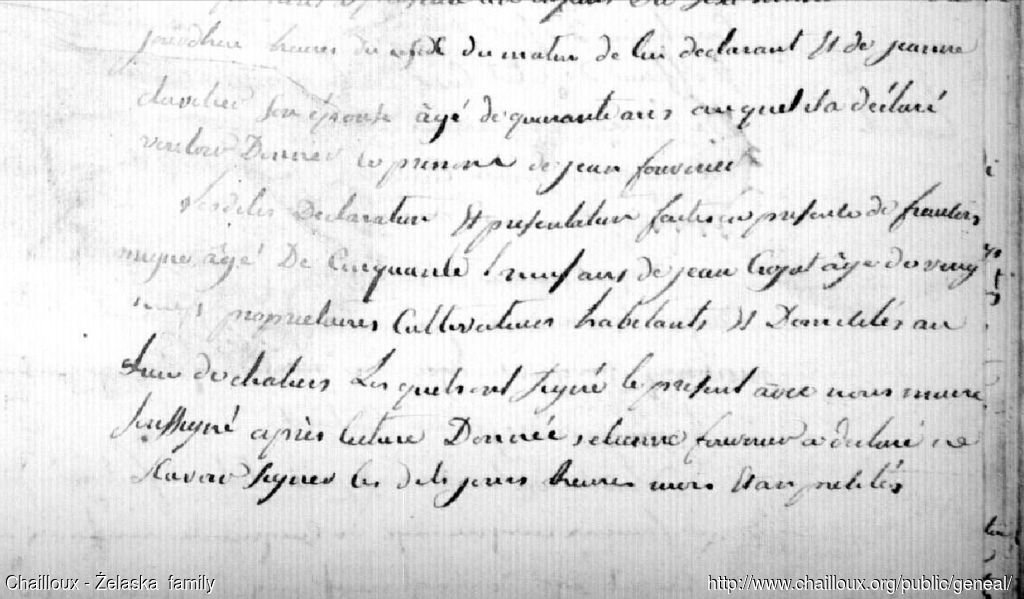 présenté un enfant du sexe
jourdhui heures du matin de lui declarant Et de jeanne
son épouse âgé de quarante ans auquel il a déclaré
vouloir Donner le prenom de jean fournier
Lesdites Declaration Et presentation faites en presence de francois
âgé De Cinquante neuf ans de jean âge de ving
neuf proprietaires Cultivateurs habitants Et Domicilés au
lieu de Lesquels ont signé le present avec nous maire
soussigné après lecture Donnée etienne fournier a declaré ne
scavoir signer les dits jours heures mois Et an predités
Chailloux - Żelaska family
http://www.chailloux.org/public/geneal/